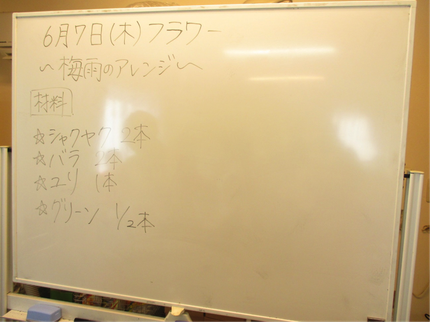 6月7日(木)フラワー
～梅雨のアレンジ～
材料
☆シャクヤク 2本
☆バラ 2本
☆ユリ 1本
☆グリーン 1/2本